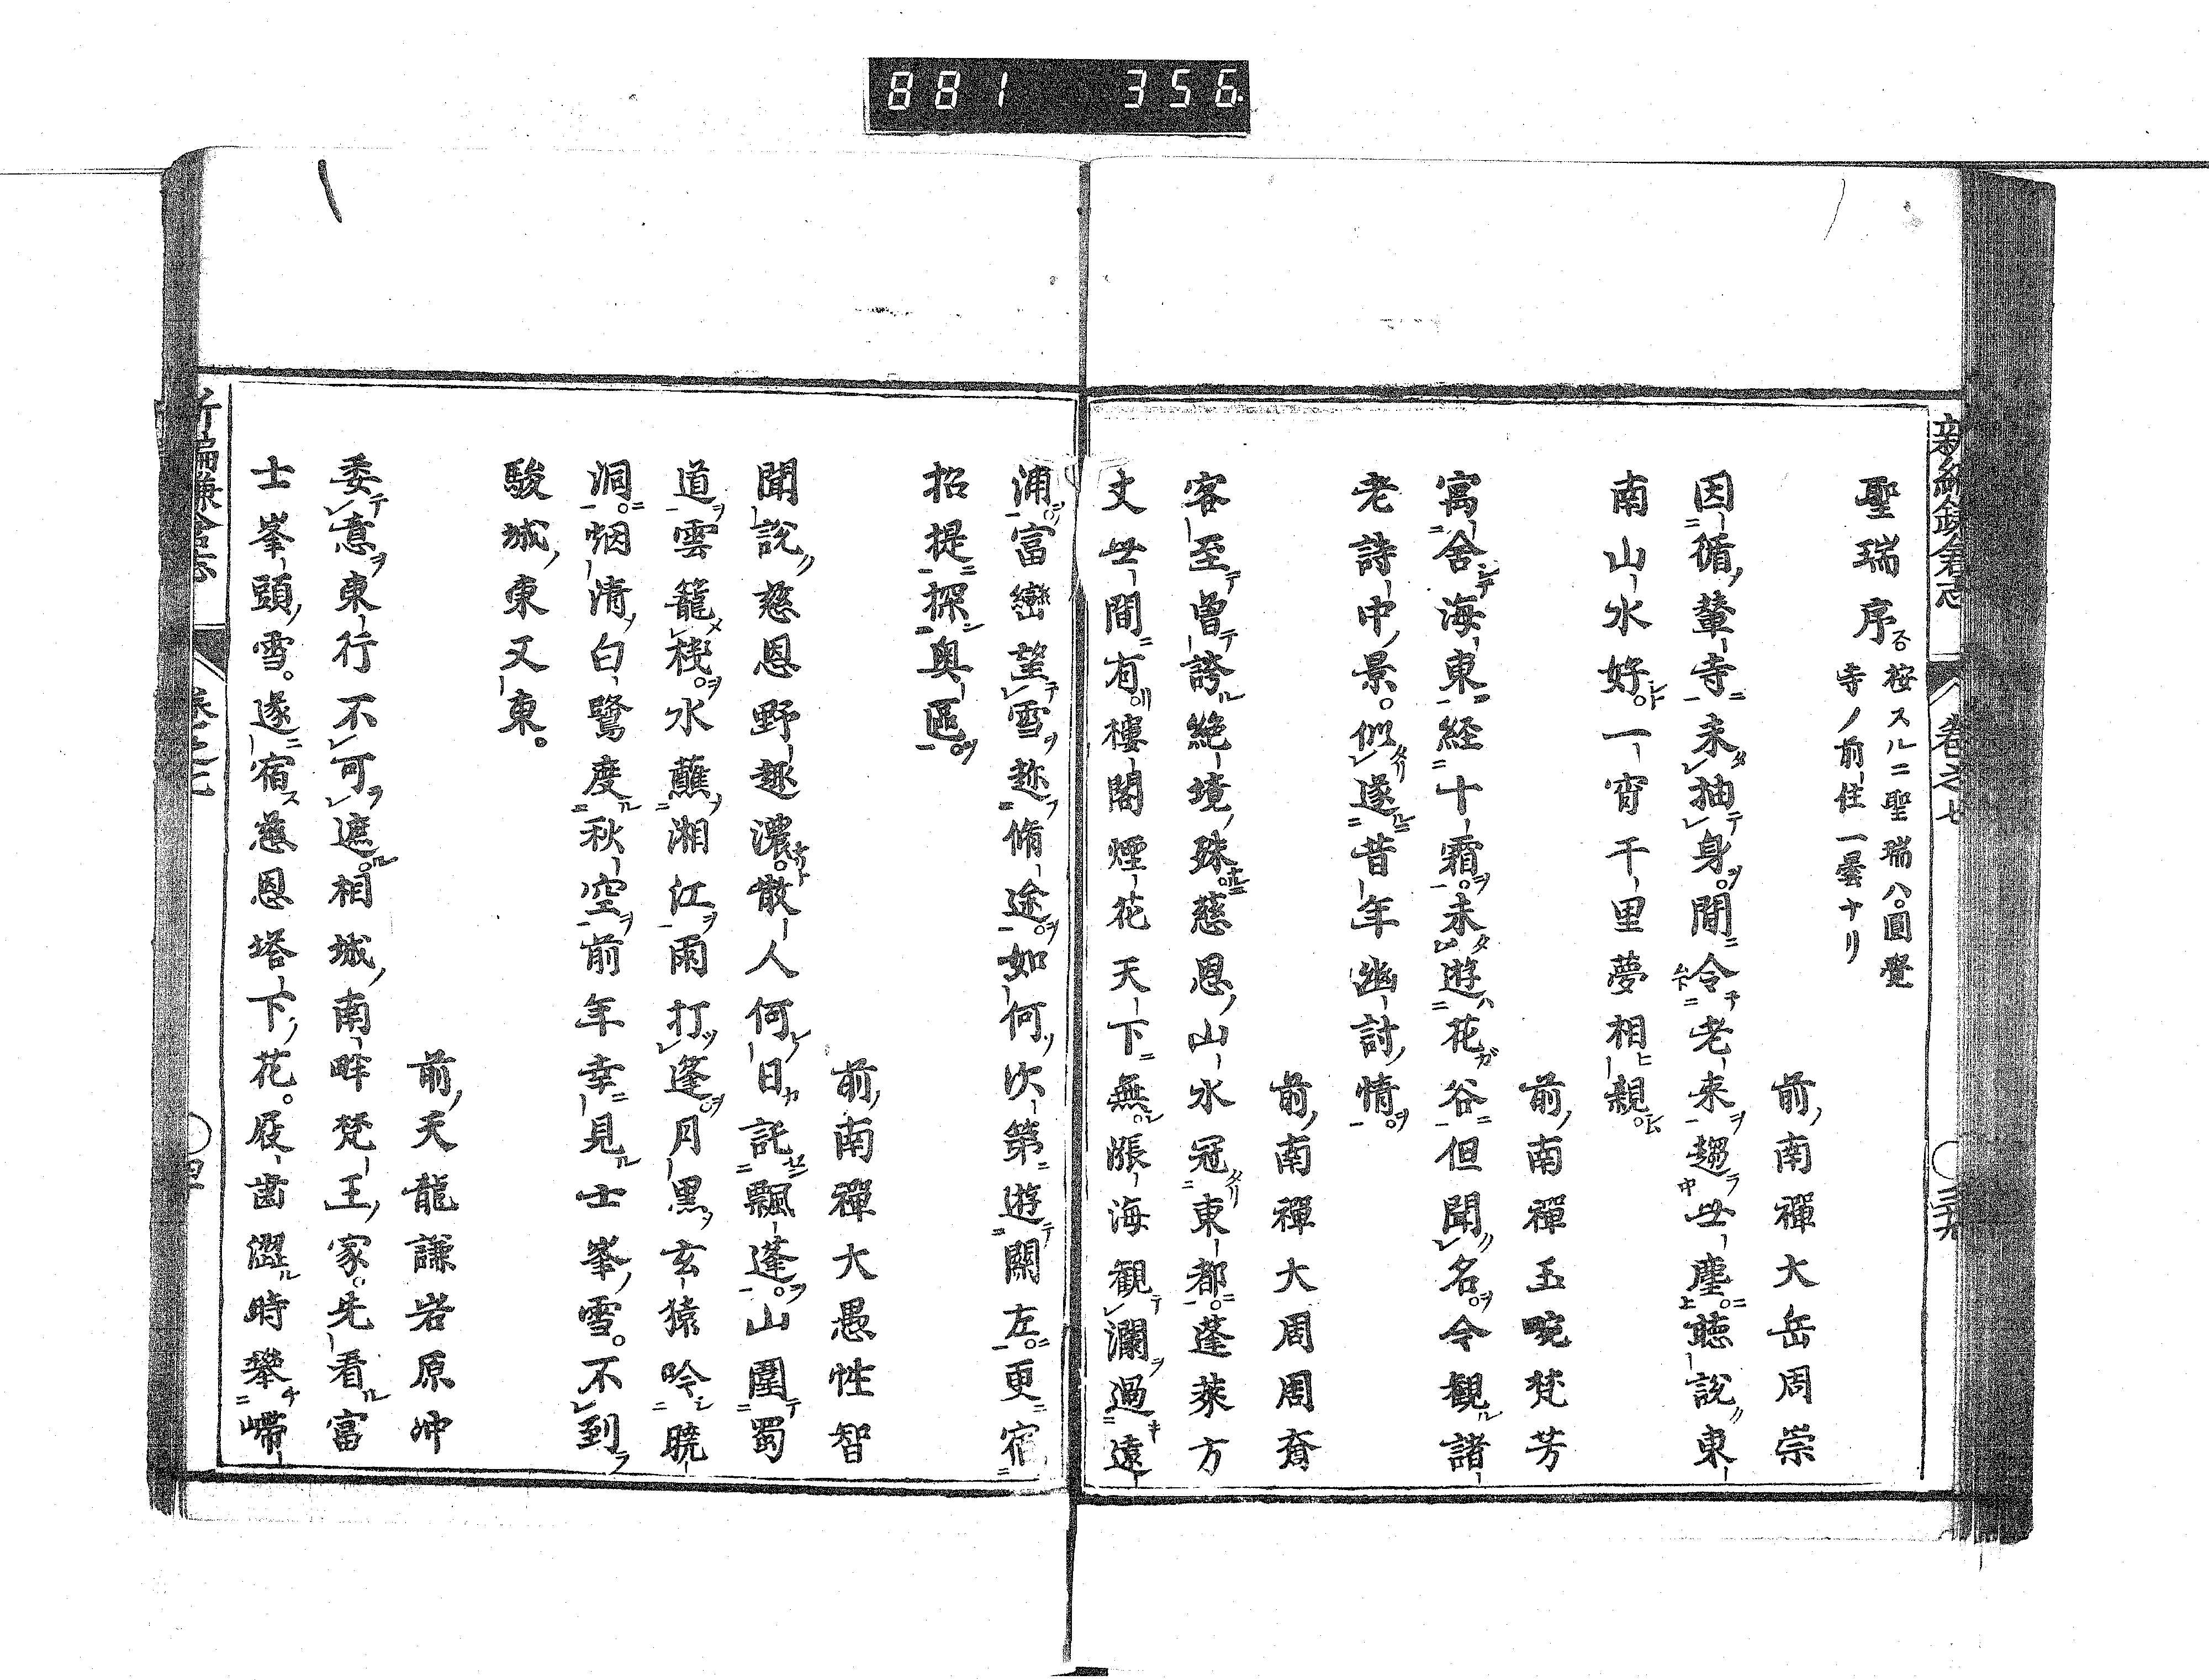 881 356
新編鎌倉志 卷之七
聖瑞序 按スルニ聖瑞ハ圓覺
寺ノ前住一曇ナリ
前南禪大岳周崇
因循輦寺未抽身。間令老来趨世塵。聴説東
南山水好。一宵千里夢相親。
前南禪玉畹梵芳
寓舍海東経十霜。未遊花谷但聞名。今観諸
老詩中景。似遂昔年幽討情。
前南禪大周周奝
客至曽誇絶境殊。慈恩山水冠東都。蓬莱方
丈世間有。樓閣煙花天下無。漲海観瀾過遠
浦。富巒望雪趂脩途。如何次第遊關左。更宿
招提探奥區。
前南禪大愚性智
聞説慈恩野趣濃。散人何日託飄蓬。山圍蜀
道雲籠棧。水蘸湘江雨打篷。月黒玄猿吟曉
洞。烟清白鷺度秋空。前年幸見士峯雪。不到
駿城東又東。
前天龍謙岩原冲
委意東行不可遮。相城南畔梵王家。先看富
士峯頭雪。遂宿慈恩塔下花。屐齒澀時攀嶂
新編鎌倉志 卷之七